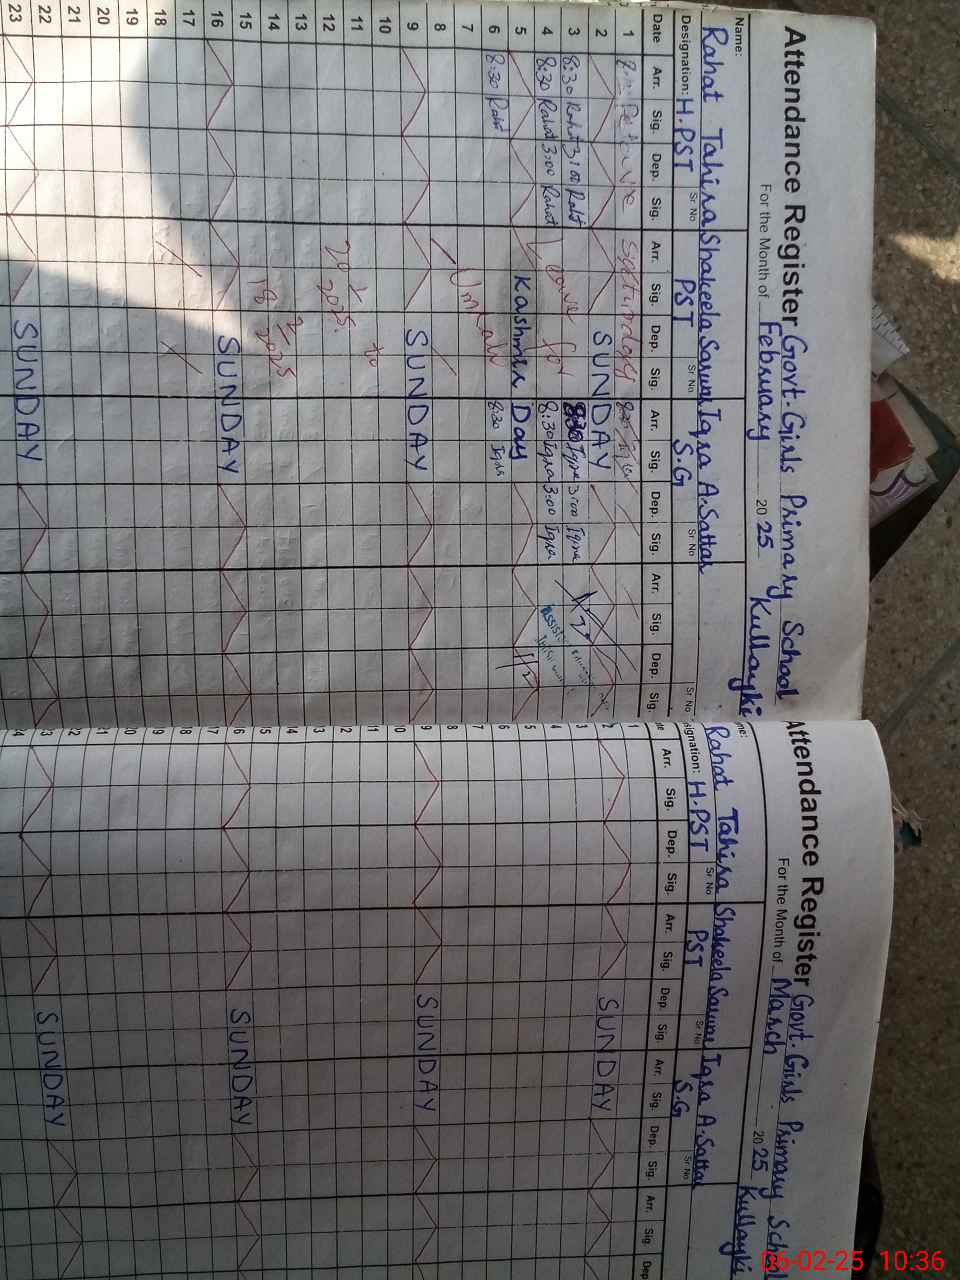 Attendance Register Govt. Girls Primary School
For the Month of February 2025 Kullayki
Name: Rahat Tahira Shakeela Sarwar Iqra A. Sattar
Designation: H.PST Sr. No PST Sr. No S.G Sr. No Sr. No
Date Arr. Sig. Dep. Sig. Arr. Sig. Dep. Sig. Arr. Sig. Dep. Sig. Arr. Sig. Dep. Sig.
1
2 SUNDAY
3 8:30 Rahat 3:00 Raht 8:30 Iqra 3:00 Iqra
4 8:30 Rahat 3:00 Rahat Leave for 8:30 Iqra 3:00 Iqra
5 Kashmir Day
6 8:30 Raht 8:30 Iqra
7 Umrah
8
9 SUNDAY
10
11 to
12 20
13 2025
14
15 18 2 2025
16 SUNDAY
17
18
19
20
21
22
23 SUNDAY
Attendance Register Govt. Girls Primary School
For the Month of March 2025 Kullayki
Rahat Tahira Shakeela Sarwar Iqra A. Sattar
H.PST Sr. No PST Sr. No S.G Sr. No
Arr. Sig. Dep. Sig. Arr. Sig. Dep. Sig. Arr. Sig. Dep. Sig. Arr. Sig. Dep
1
2 SUNDAY
3
4
5
6
7
8
9 SUNDAY
10
11
12
13
14
15
16 SUNDAY
17
18
19
20
21
22
23 SUNDAY
24
06-02-25 10:36